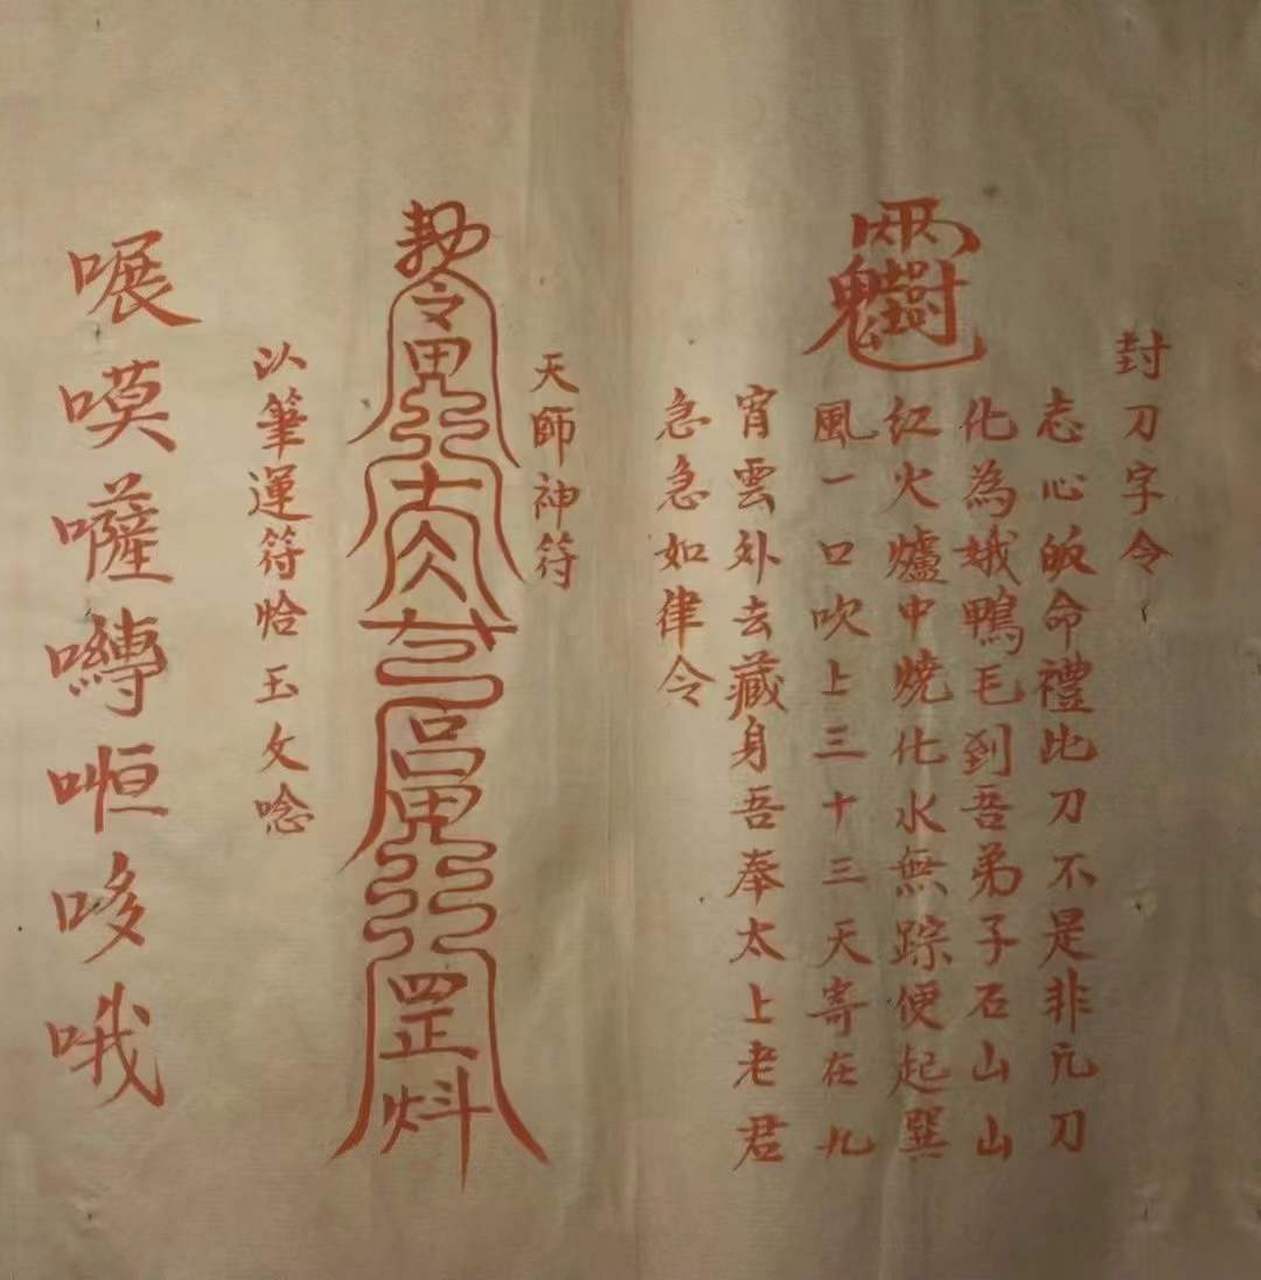 封刀字令
志心皈命禮比刀不是非凢刀
化為娥鴨毛到吾弟子石山山
紅火爐中燒化水無踪便起巽
風一口吹上三十三天寄在九
宵雲外去藏身吾奉太上老君
急急如律令
天師神符
令
罡
以筆運符恰玉文唸
㖭嗼囋囀㖶哆哦